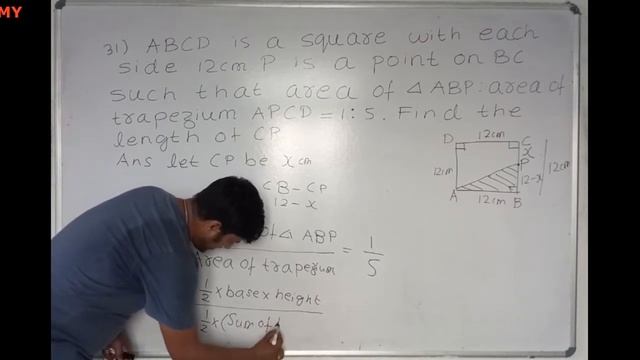 MY
31) ABCD is a square with each
side 12cm P is a point on BC
such that area of △ ABP : area of
trapezium APCD = 1:5. Find the
length of CP
Ans let CP be x cm
CB - CP
12 - x
of △ ABP
Area of trapezium
= 1/5
1/2 x base x height
1/2 x (Sum of
D 12cm C
x
P
12cm
12-x
12cm
A 12cm B